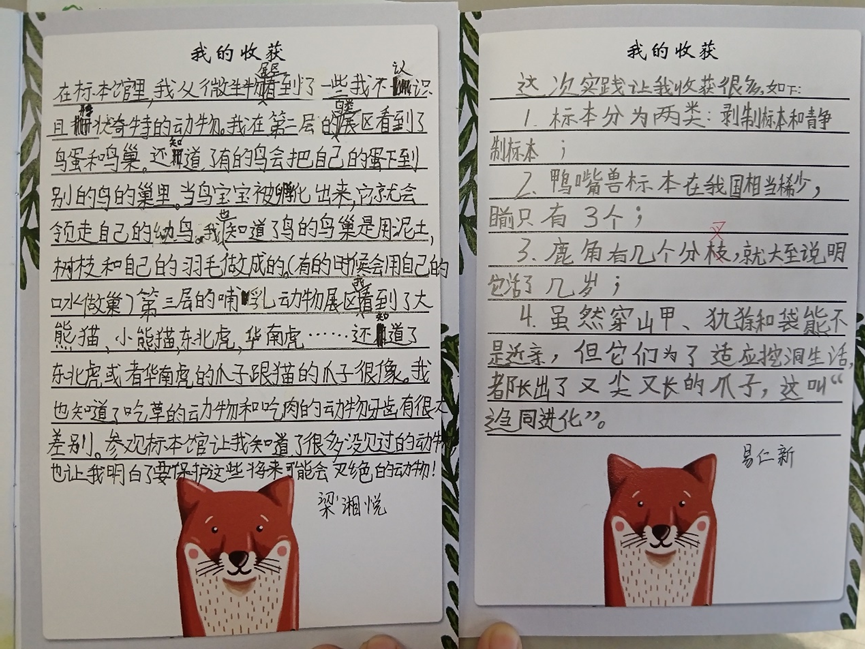 我的收获
在标本馆里,我从微生物展区看到了一些我不认识
且形状奇特的动物。我在第二层的鸟类展区看到了
鸟蛋和鸟巢。还知道了有的鸟会把自己的蛋下到
别的鸟的巢里。当鸟宝宝被孵化出来,它就会
领走自己的幼鸟。我也知道了鸟的鸟巢是用泥土,
树枝和自己的羽毛做成的。(有的时候会用自己的
口水做巢)第三层的哺乳动物展区我看到了大
熊猫、小熊猫,东北虎,华南虎……还知道了
东北虎或者华南虎的爪子跟猫的爪子很像。我
也知道了吃草的动物和吃肉的动物牙齿有很大
差别。参观标本馆让我知道了很多没见过的动物
也让我明白了要保护这些将来可能会灭绝的动物!
梁湘悦
我的收获
这次实践让我收获很多,如下:
1. 标本分为两类:剥制标本和静
制标本;
2、鸭嘴兽标本在我国相当稀少,
目前只有3个;
3. 鹿角有几个分枝,就大至说明
它活了几岁;
4. 虽然穿山甲、犰狳和袋熊不
是近亲,但它们为了适应挖洞生活,
都长出了又尖又长的爪子,这叫“
趋同进化”。
易仁新